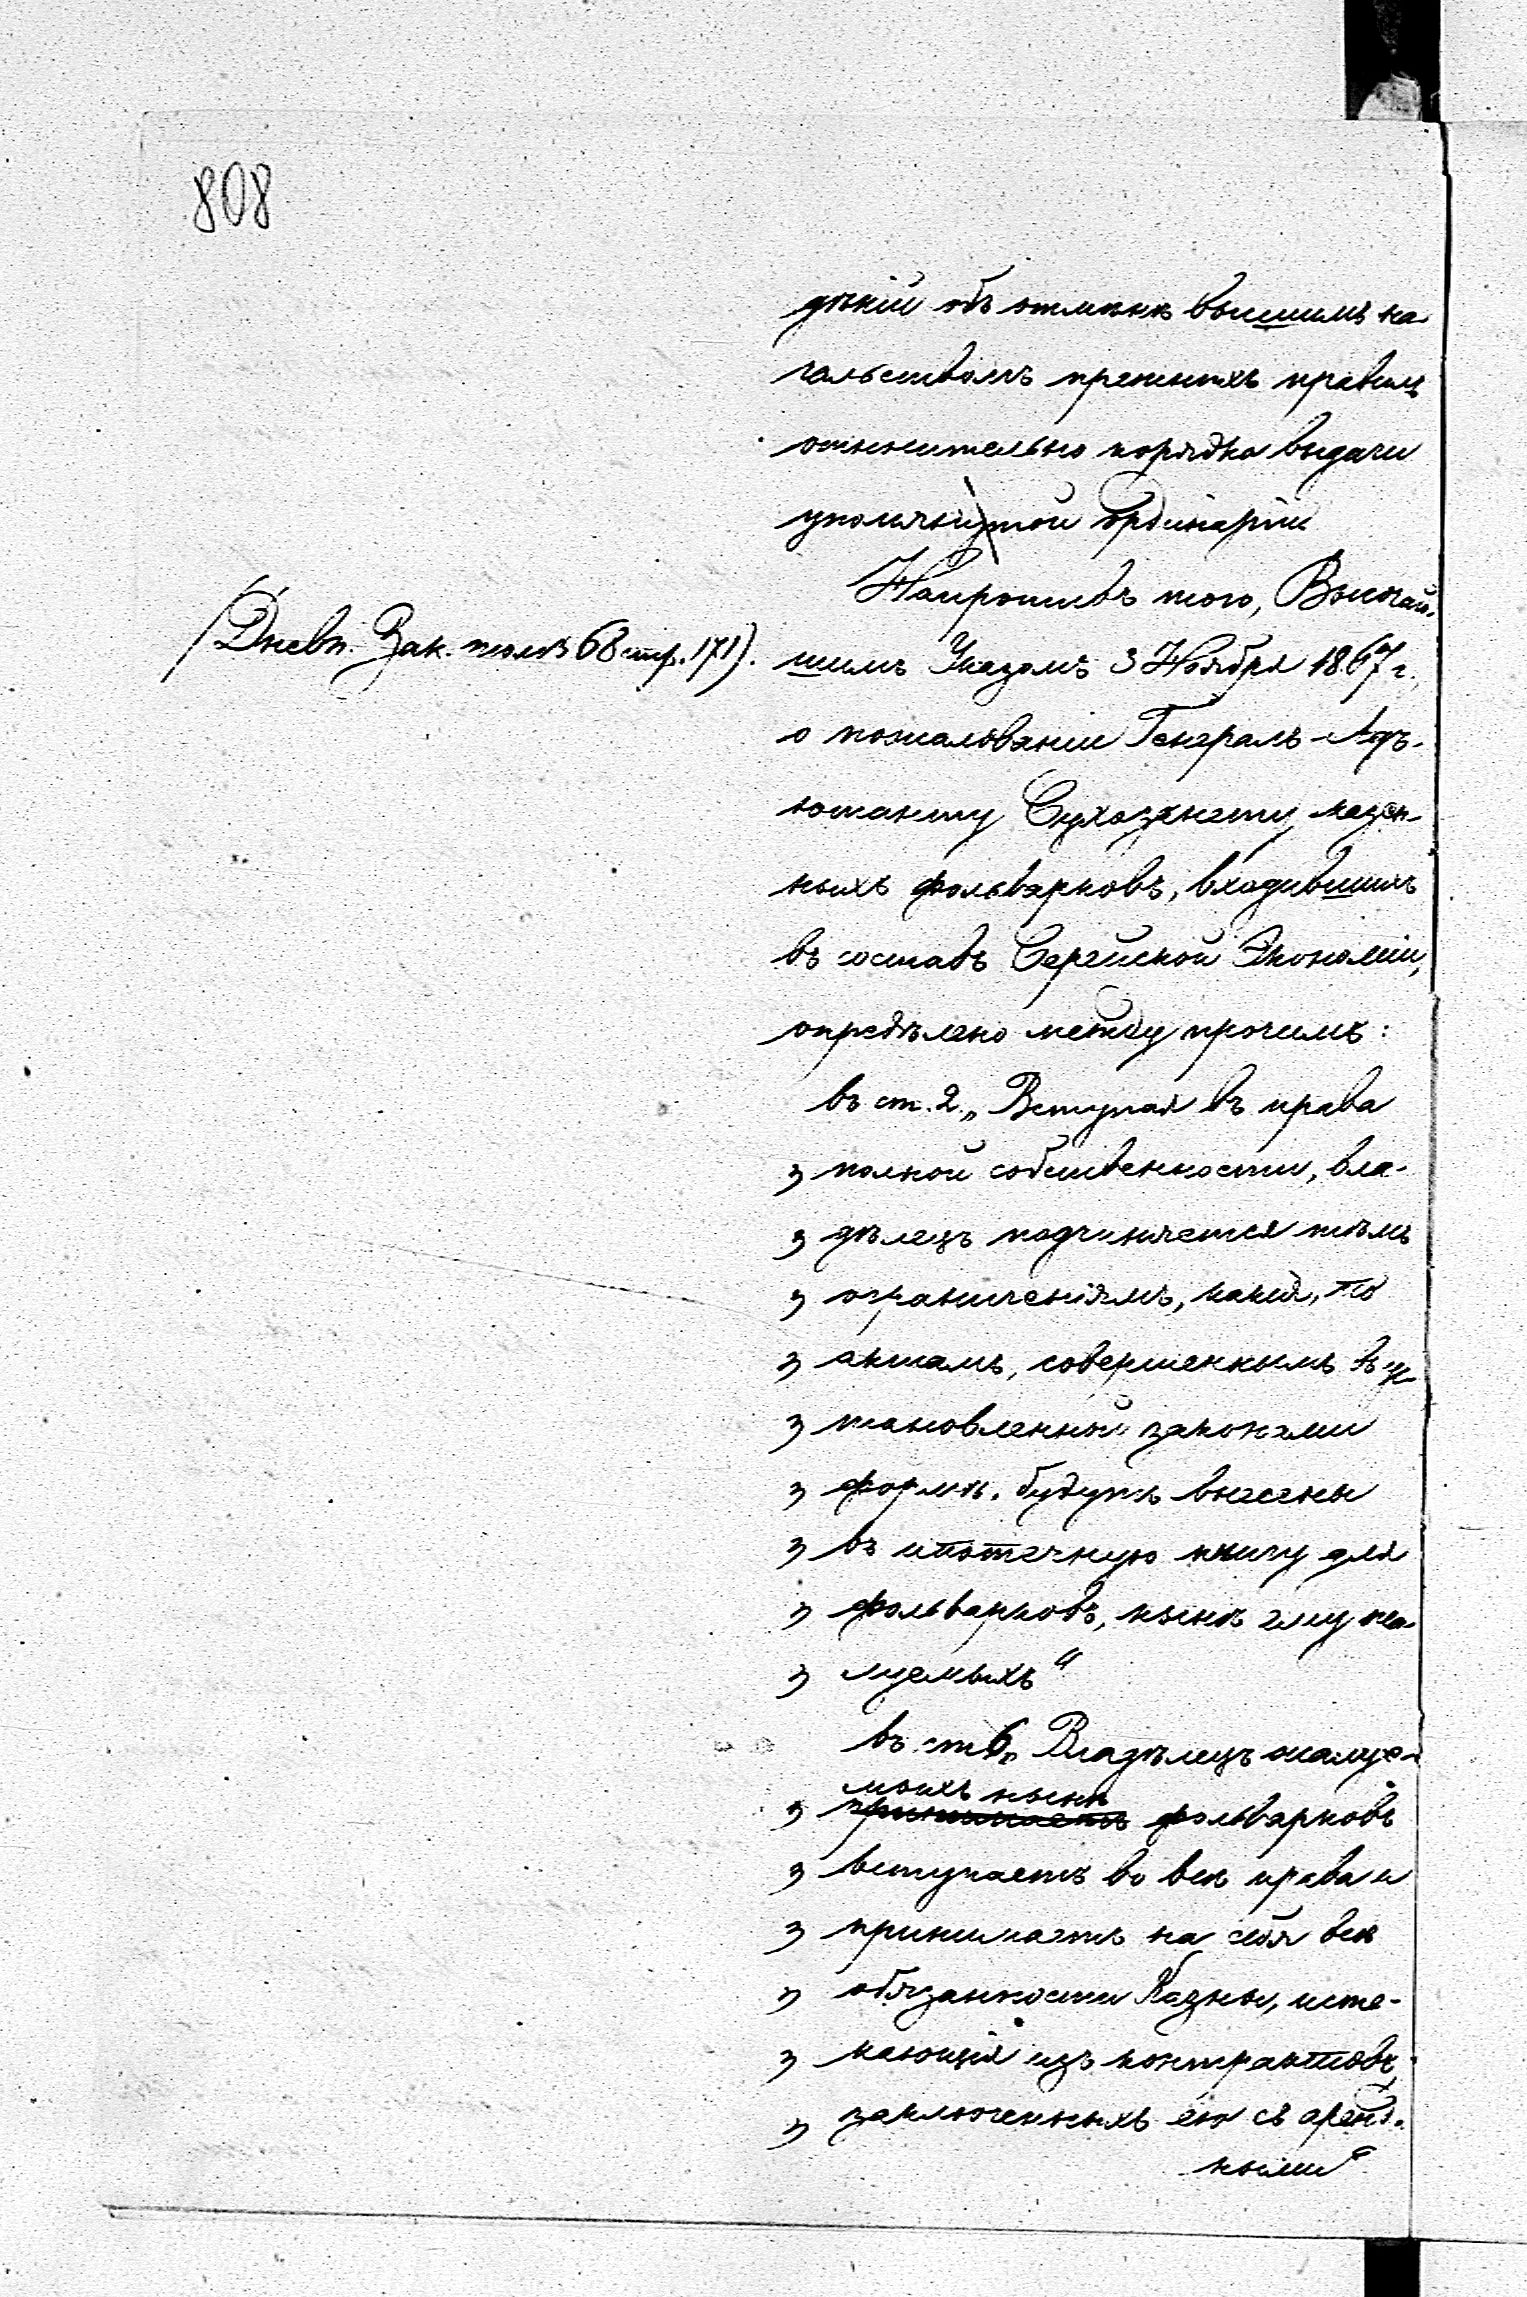 808
дѣній объ отмѣнѣ высшимъ на-
чальствомъ прежнихъ правилъ
относительно порядка выдачи
упомянутой ординаріи
Напротивъ того, Высочай-
(Дневн. Зак. томъ 68 стр. 171).
шимъ Указомъ 3 Ноября 1867 г.
о пожалованіи Генералъ-Адъ-
ютанту Сухозанету казен-
ныхъ фольварковъ, входившихъ
въ составъ Серейской Экономіи,
опредѣлено между прочимъ:
въ ст. 2. „Вступая въ права
„ полной собственности, вла-
„ дѣлецъ подчиняется тѣмъ
„ ограниченіямъ, какія, по
„ актамъ, совершеннымъ въ ус-
„ тановленной законами
„ формѣ, будутъ внесены
„ въ ипотечную книгу для
„ фольварковъ, нынѣ ему жа-
„ луемыхъ“
въ ст. 6 „Владѣлецъ жалуе-
мыхъ нынѣ
„ принимаетъ фольварковъ
„ вступаетъ во всѣ права и
„ принимаетъ на себя всѣ
„ обязанности Казны, исте-
„ кающія изъ контрактовъ,
„ заключенныхъ ею съ аренд-
ными“